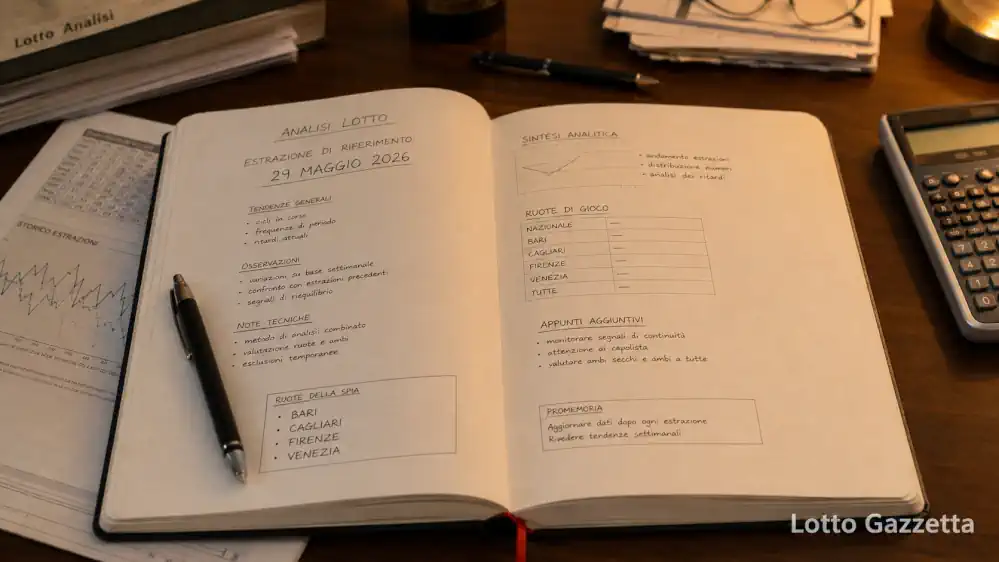 Lotto Analisi
STORICO ESTRAZIONI
ANALISI LOTTO
ESTRAZIONE DI RIFERIMENTO
29 MAGGIO 2026
TENDENZE GENERALI
• cicli in corso
• frequenze di periodo
• ritardi attuali
OSSERVAZIONI
• variazioni su base settimanale
• confronto con estrazioni precedenti
• segnali di riequilibrio
NOTE TECNICHE
• metodo di analisi combinato
• valutazione ruote e ambi
• esclusioni temporanee
RUOTE DELLA SPIA
• BARI
• CAGLIARI
• FIRENZE
• VENEZIA
SINTESI ANALITICA
• andamento estrazioni
• distribuzione numeri
• analisi dei ritardi
RUOTE DI GIOCO
NAZIONALE —
BARI —
CAGLIARI —
FIRENZE —
VENEZIA —
TUTTE —
APPUNTI AGGIUNTIVI
• monitorare segnali di continuità
• attenzione ai capolista
• valutare ambi secchi e ambi a tutte
PROMEMORIA
Aggiornare dati dopo ogni estrazione
Rivedere tendenze settimanali
Lotto Gazzetta